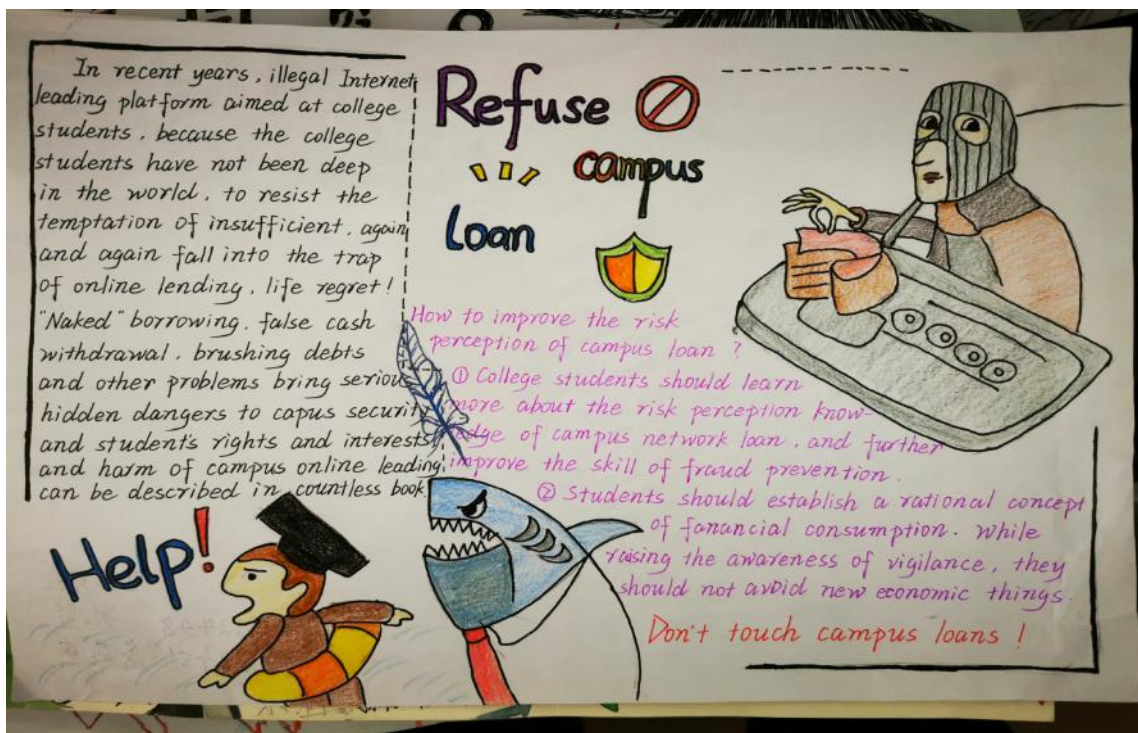 In recent years, illegal Internet
leading platform aimed at college
students, because the college
students have not been deep
in the world, to resist the
temptation of insufficient, again
and again fall into the trap
of online lending, life regret!
"Naked" borrowing, false cash
withdrawal, brushing debts
and other problems bring serious
hidden dangers to capus security
and student's rights and interests,
and harm of campus online leading
can be described in countless book.
Refuse
campus
Loan
How to improve the risk
perception of campus loan?
① College students should learn
more about the risk perception know-
ledge of campus network loan, and further
improve the skill of fraud prevention.
② Students should establish a rational concept
of fanancial consumption. While
raising the awareness of vigilance, they
should not avoid new economic things.
Don't touch campus loans!
Help!